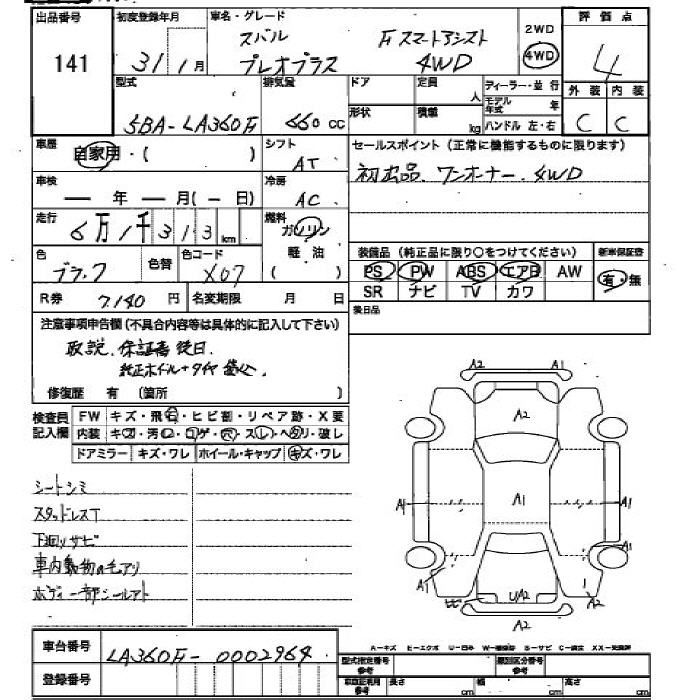 出品番号 初度登録年月 車名・グレード 2WD 評価点
141 31 1月 スバル F スマートアシスト 4WD 4
プレオプラス 4WD
型式 排気量 ドア 定員 人 ディーラー・並行 外装 内装
形状 積載 kg モデル年式 年
5BA-LA360F 660 CC ハンドル 左・右 C C
車歴 自家用・( ) シフト AT セールスポイント(正常に機能するものに限ります)
車検 ― 年 ― 月(― 日) 冷房 AC 初出品 ワンオーナー 4WD
走行 6万1千313km 燃料 ガソリン
軽油 ( )
装備品(純正品に限り○をつけてください) 新車保証書
色 ブラック 色替 色コード X07 PS PW ABS エアB AW 有・無
R券 7140円 名変期限 月 日 SR ナビ TV カワ
後日品
注意事項申告欄(不具合内容等は具体的に記入して下さい)
取説、保証書 後日
純正ホイル+タイヤ
修復歴 有 (箇所 )
検査員記入欄 FW キズ・飛石・ヒビ割・リペア跡・X要
内装 キズ・汚れ・コゲ・穴・スレ・ヘタリ・破レ
ドアミラー キズ・ワレ ホイール・キャップ キズ・ワレ
シートシミ
スタッドレスT
下回リサビ
車内動物の毛アリ
ボディー部シールアト
A2 A1
A2
A1 A1 A1
A1
A1 UA2 A2
A2
車台番号 LA360F-0002964
A-キズ E-エクボ U-凹み W-補修跡 S-サビ C-腐食 XX-交換済
登録番号
型式指定番号 参考 類別区分番号 参考
長さ cm 幅 cm 高さ cm